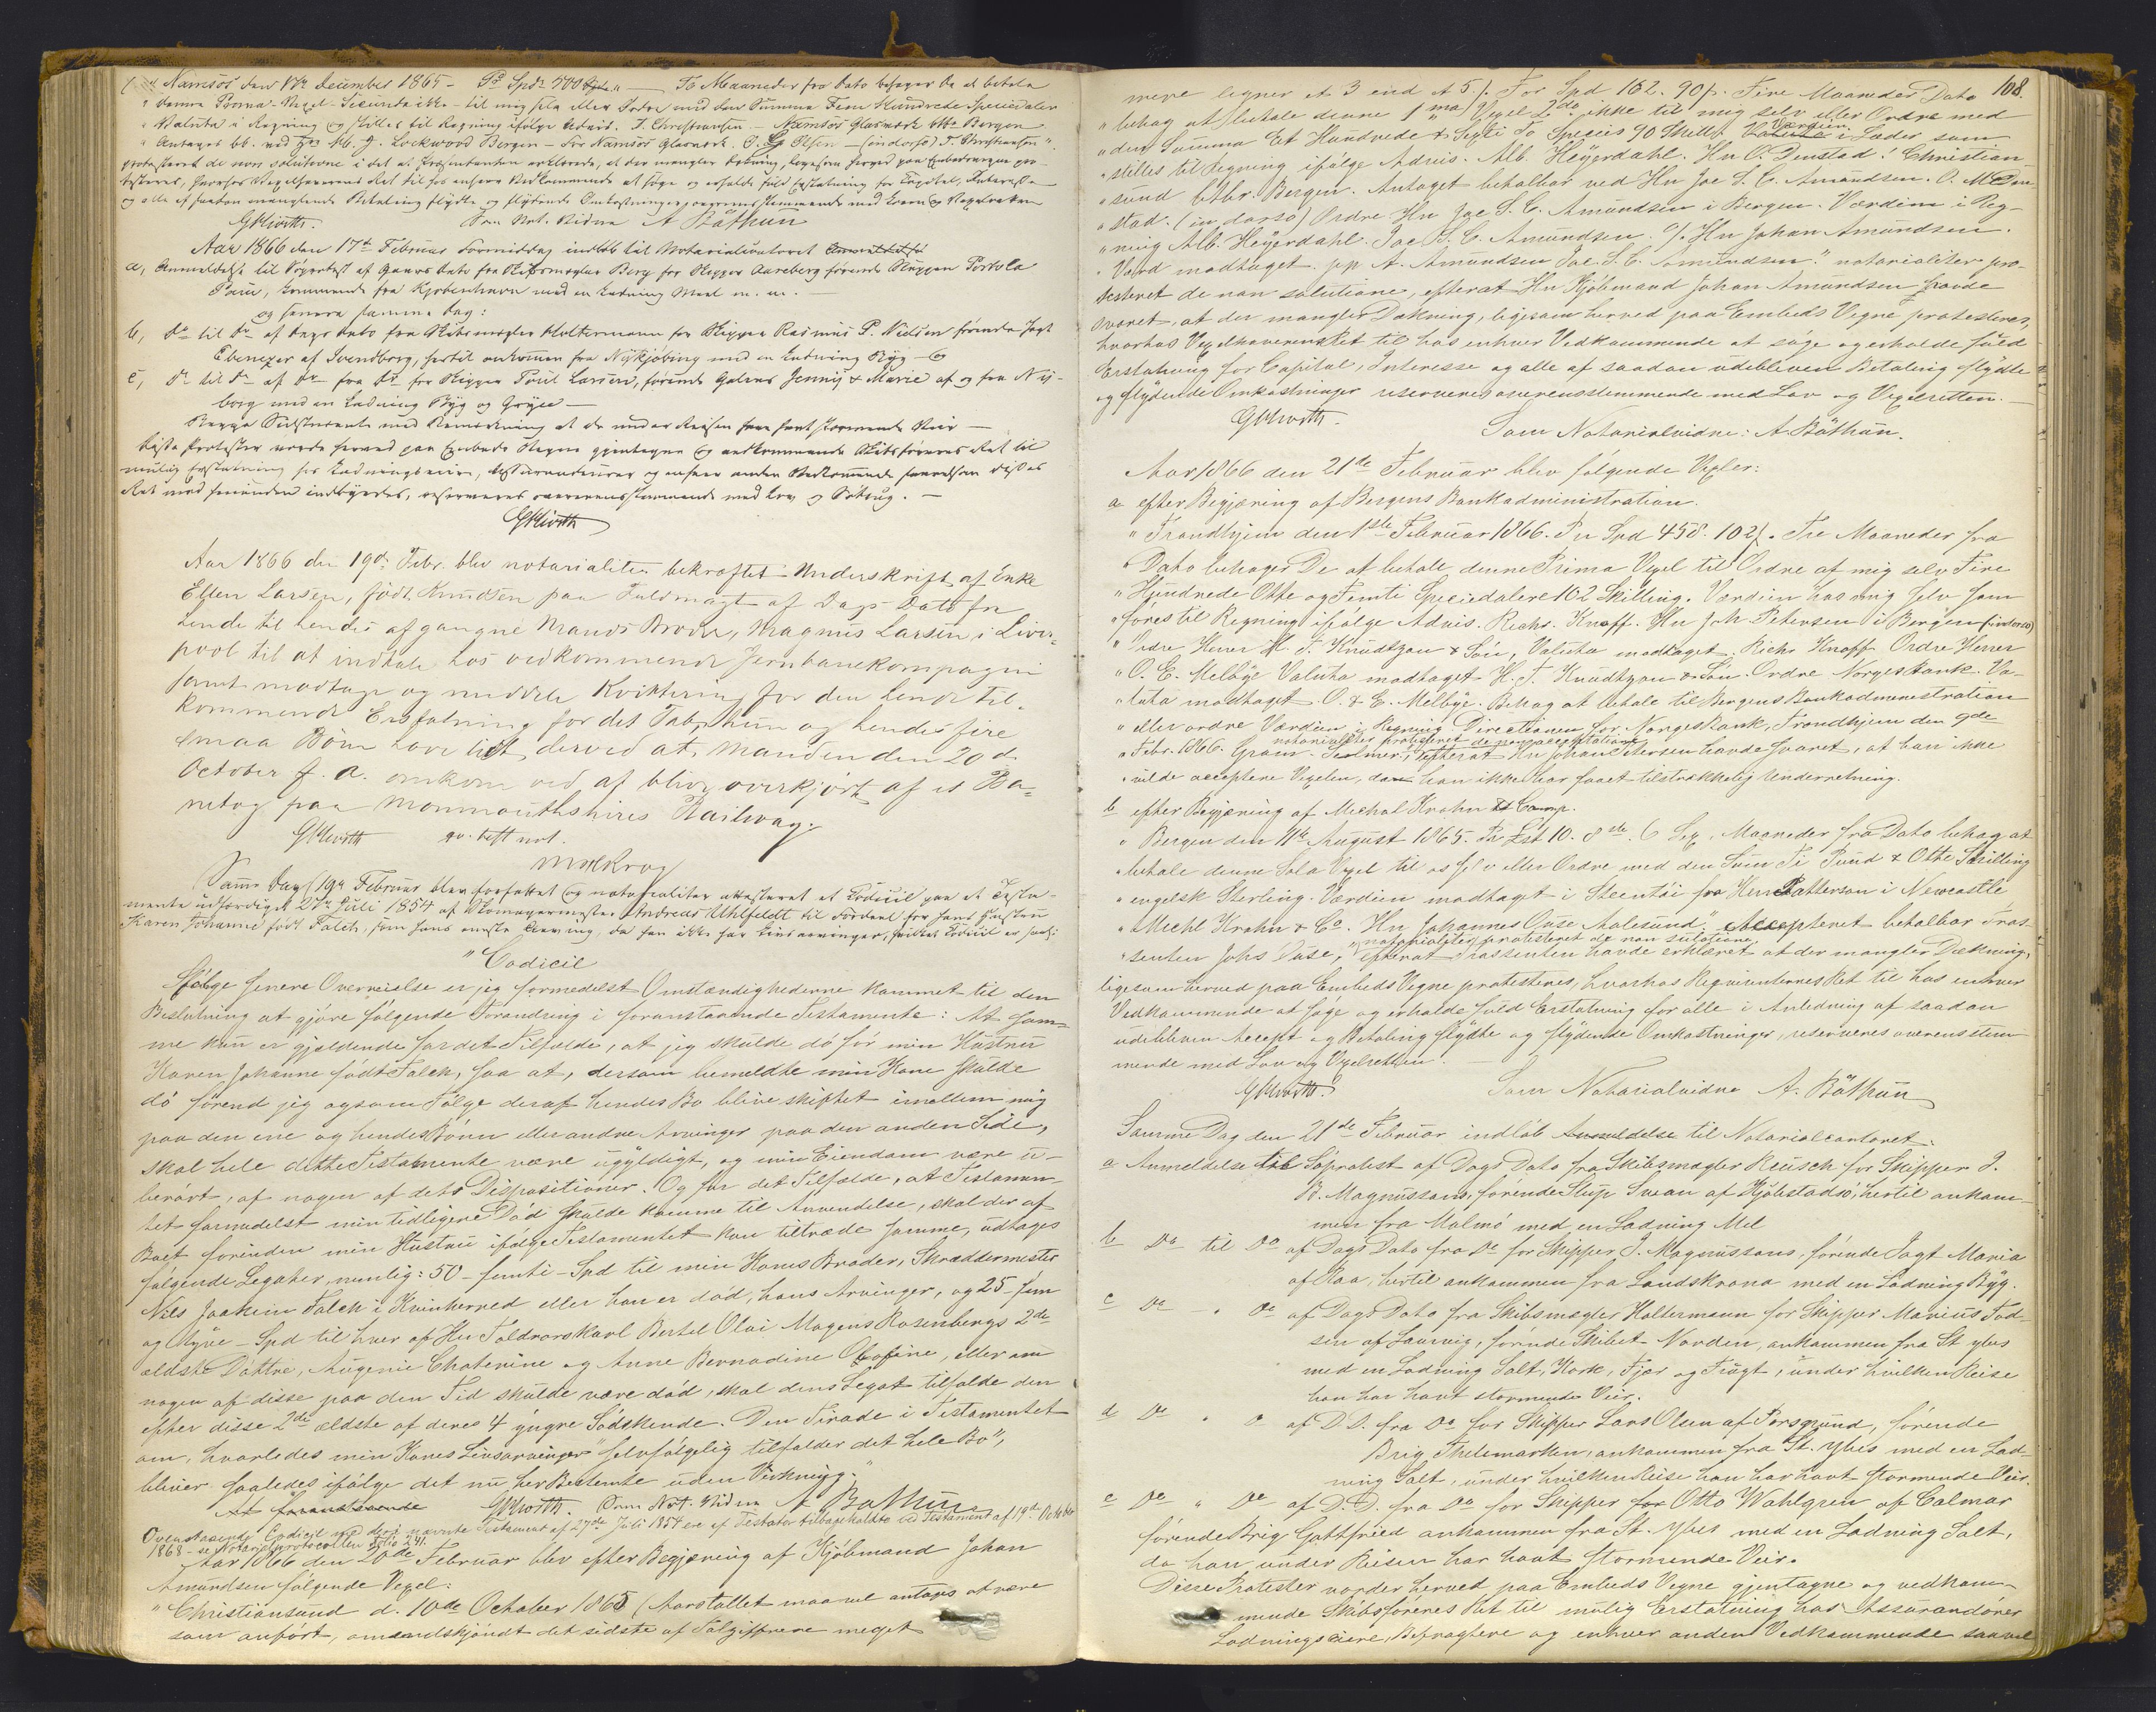 " Namsos den 17de December 1865 - Pr Spd. 500 To Maaneder fra Dato behager De at betale
" denne Prima-Vexel-Secunda ikke - til mig selv eller Ordre med den Summa Fem Hundrede Speciedaler
" Valuta i Regning og stilles til Regning ifølge Advis. T. Christiansen - Namsos Glasværk Bergen
" Antages bb. ved Lockwood Bergen - For Namsos Glasværk. O. Olsen - (in dorso) T. Christiansen".
protesteret de non solutione i det at Præsentanten erklærede, at der mangler Dækning, ligesom herved paa Embedsvegne pro-
testeres, hvorhos Vexelhaverens Ret til hos enhver Vedkommende at søge og erholde fuld Erstatning for Capital, Interesse
og alle af saadan manglende Betaling flydte og flydende Omkostninger, overensstemmende med Loven og Vexelretten
Som Not. Vidne A Bøthun
Aar 1866 den 17de Februar Formiddag indløb til Notarialcontoret
a, Anmeldelse til Søprotest af Gaars Dato fra Skibsmægler Berg for Skipper Aareberg førende Skippen
kommende fra Kjøbenhavn med en Ladning Meel m. m. -
og senere samme Dag:
b, Do til Do af Dags Dato fra Skibsmægler Holtermann for Skipper Rasmus P. Nielsen førende Jagt
Ebenezer af Svendborg, hertil ankommen fra Nykjøbing med en Ladning Byg - og
c, Do til Do af Do fra Do for Skipper Poul Larsen, førende Galeas Jenny & Marie af og fra Ny-
borg med en Ladning Byg og Gryn -
Begge Sidstnævnte med Bemærkning at de under Reisen have havt stormende Veir -
Disse Protester vorde herved paa Embeds Vegne gjentagne og vedkommende Skibsføreres Ret til
mulig Erstatning hos Ladningseiere, Assurandeurer og enhver anden Vedkommende saavelsom disses
Ret mod hinanden indbyrdes, reserveres overensstemmende med Lov og Søbrug. -
Aar 1866 den 19de Febr. blev notarialiter bekræftet Underskrift af Enke
Ellen Larsen, født Knudsen paa Fuldmagt af Dags Dato fra
hende til hendes afgangne Mands Broder, Magnus Larsen i Liver-
pool til at indtale hos vedkommende Jernbanekompagni
samt modtage og meddele Kvittering for den hende til-
kommende Erstatning for det Tab, hun og hendes fire
smaa Børn have lidt derved at Manden den 20de
October f. A. omkom ved at blive overkjørt af et Ba-
netog paa Monmouthshires Railway.
qv. test not.
Samme Dag (19de Februar blev forfattet og notarialiter attesteret et Codicil paa et Testa-
mente udfærdiget 27de Juli 1854 af Skomagermester Andreas Uhlfeldt til Fordeel for hans Hustru
Karen Johanne født Falch, som hans eneste Arving, da han ikke har Livsarvinger, hvilket Codicil er saal:
"Codicil
Ifølge senere Overveielse er jeg formedelst Omstændighederne kommet til den
Beslutning at gjøre følgende Forandring i foranstaaende Testamente: At sam-
me kun er gjældende for det Tilfælde, at jeg skulde dø før min Hustru
Karen Johanne født Falch, saa at, dersom bemeldte min Kone skulde
dø førend jeg og som Følge deraf hendes Bo blive skiftet imellem mig
paa den ene og hendes Børn eller andre Arvinger paa den anden Side,
skal hele dette Testamente være ugyldigt, og min Eiendom være u-
berørt, af nogen af dets Dispositioner. Og for det Tilfælde, at Testamen-
tet formedelst min tidligere Død skulde komme til Anvendelse, skal der af
Boet forinden min Hustru ifølge Testamentet kan tiltræde samme, udtages
følgende Legater, nemlig: 50 - femti - Spd til min Kones Broder, Skræddermester
Nils Joakim Falch i Kvinherred eller han er død, hans Arvinger, og 25 - fem
og tyve - Spd til hver af Hr Toldroerskarl Bertel Olai Magens Rosenbergs 2de
ældste Døttre, Augenie Chaterine og Anne Bernadine Olofine, eller om
nogen af disse paa den Tid skulde være død, skal dens Legat tilfalde den
efter disse 2de ældste af deres 4 yngre Sødskende. Den Tirade i Testamentet
om, hvorledes min Kones Livsarvinger "selvfølgelig tilfalder det hele Bo",
bliver saaledes ifølge det nu her Bestemte uden Virkning."
At foranstaaende Som Not. Vidne A Bøthun
Ovenstaaende Codicil med deri nævnte Testament af 27de Juli 1854 er af Testator tilbagekaldte ved Testament af 19de October
1868 - se Notarialprotocollen Folio 241.
Aar 1866 den 20de Februar blev efter Begjæring af Kjøbmand Johan
Amundsen følgende Vexel:
"Christiansund d. 10de October 1865 (Aarstallet maa vel antages at være
som anført, omendskjøndt det sidste af Talziffrene meget
108.
mere ligner et 3 end et 5.). For Spd 162. 90 s. Fire Maaneder Dato
" behag at betale denne 1ma Vexel 2da ikke til mig selv eller Ordre med
" den Summa Et Hundrede & Sexti To Species 90 Skill Værdien i Læder som
" stilles til Regning ifølge Advis. Alb. Heyerdahl. Hr O. Denstad! Christian-
" sund btbr. Bergen. Antaget betalbar ved Hr Jac S. C. Amundsen. O. M Den-
" stad. (in dorso) Ordre Hr Jac S. C. Amundsen i Bergen. Værdien i Reg-
" ning Alb. Heyerdahl. Jac S. C. Amundsen. Hr Johan Amundsen.
" Værd modtaget. pp A. Amundsen Jac. S. C. Amundsen." notarialiter pro-
testeret de non solutione, efterat Hr Kjøbmand Johan Amundsen havde
svaret, at der mangler Dækning, ligesom herved paa Embeds Vegne protesteres,
hvorhos Vexelhaverens Ret til hos enhver Vedkommende at søge og erholde fuld
Erstatning for Capital, Interesse og alle af saadan udebleven Betaling flydte
og flydende Omkostninger reserveres overensstemmende med Lov og Vexelretten.
Som Notarialvidne: A. Bøthun.
Aar 1866 den 21de Februar blev følgende Vexler:
a efter Begjæring af Bergens Bankadministration.
" Trondhjem den 1ste Februar 1866. Pr Spd 458. 102 s. Tre Maaneder fra
" Dato behager De at betale denne Prima Vexel til Ordre af mig selv Fire
" Hundrede Otte og Femti Speciedalere 102 Skilling. Værdien hos mig selv som
" føres til Regning ifølge Advis. Richs. Knoff. Hr Joh Petersen i Bergen (indorso)
" Ordre Herrer H. T. Knudtzon & Søn, Valuta modtaget. Richs Knoff. Ordre Herrer
" O. E. Melbye Valuta modtaget H. T. Knudtzon & Søn. Ordre Norges Bank. Va-
" luta modtaget O. & E. Melbye. Behag at betale til Bergens Bankadministration
" eller ordre Værdien i Regning Directionen for Norges Bank, Trondhjem den 9de
notarialiter protesteret de non acceptatione
" Febr. 1866. Gram. efterat Hr Johan Petersen havde svaret, at han ikke
" vilde acceptere Vexelen, da han ikke har faaet tilstrækkelig Underretning.
b efter Begjæring af Michal Krohn & Comp.
" Bergen den 11te August 1865. Pr Lst 10. 8 . Sex Maaneder fra Dato behag at
" betale denne Sola Vexel til os selv eller Ordre med den Sum Ti Pund & Otte Skilling
" engelsk Sterling. Værdien modtaget i Steentøi fra Herr Patterson i Newcastle
" Michl Krohn & Co. Hr Johannes Duse Aalesund." Accepteret betalbar Tras-
notarialiter protesteret de non solutione
" senten Johs Duse," efterat Trassenten havde erklæret at der mangler Dækning,
ligesom herved paa Embeds Vegne protesteres, hvorhos Reqvirenternes Ret til hos enhver
Vedkommende at søge og erholde fuld Erstatning for alle i Anledning af saadan
udebleven Accept og Betaling flydte og flydende Omkostninger, reserveres overensstem-
mende med Lov og Vexelretten.
Som Notarialvidne A. Bøthun
Samme Dag den 21de Februar indløb Anmeldelse til Notarialcontoret:
a Anmeldelse til Søprotest af Dags Dato fra Skibsmægler Reusch for Skipper J.
B. Magnussons, førende Slup Swan af hertil ankom-
men fra Malmø med en Ladning Mel
b Do til Do af Dags Dato fra Do for Skipper J. Magnussons, førende Jagt Maria
af Raa, hertil ankommen fra Landskrona med en Ladning Byg.
c Do - " Do af Dags Dato fra Skibsmægler Holtermann for Skipper Marius Tod-
sen af Laurvig, førende Skibet Norden, ankommen fra St ybes
med en Ladning Salt, Kork, Fjær og Frugt, under hvilken Reise
han har havt stormende Veir.
d Do " Do af D. D. fra Do for Skipper Lars Olsen af Porsgrund, førende
Brig Thelemarken, ankommen fra St. Ybes med en Lad-
ning Salt, under hvilken Reise han har havt stormende Veir.
e Do " Do af D. D. fra Do for Skipper for Otto Wahlgren af Calmar
førende Brig Gottfried ankommen fra St. Ybes med en Ladning Salt,
da han under Reisen har havt stormende Veir.
Disse Protester vorder herved paa Embeds Vegne gjentagne og vedkom-
mende Skibsføreres Ret til mulig Erstatning hos Assurandører
Ladningseiere, Befragtere og enhver anden Vedkommende saavel